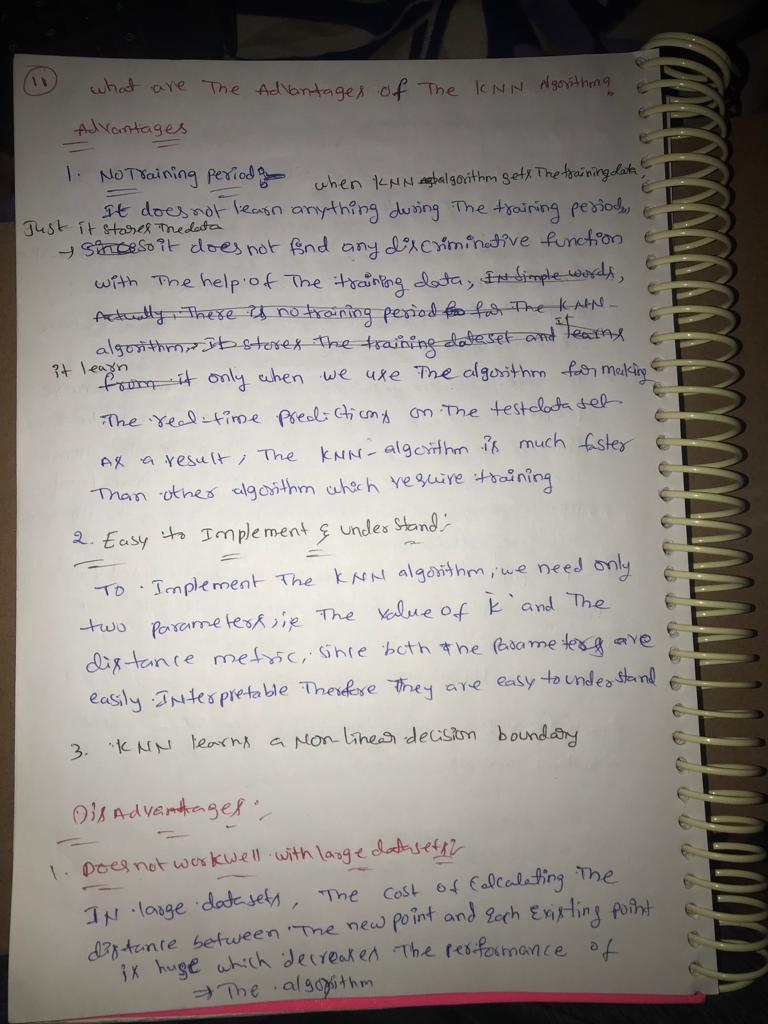 11 What are The Advantages of The KNN Algorithm?
Advantages
1. No Training Period:- when KNN algorithm gets The training data,
It does not learn anything during The training period,
Just it stores The data
→ Since so it does not find any discriminative function
with The help of The training data, IN simple words,
Actually, There is no training period for The KNN-
algorithm. It stores The training dataset and It learns
it learn
from it only when we use The algorithm for making
The real-time predictions on The test data set
As a result, The KNN-algorithm is much faster
Than other algorithm which require training
2. Easy to Implement & understand:-
To Implement The KNN algorithm, we need only
two parameters, i.e The value of 'k' and The
distance metric, since both the parameters are
easily INterpretable Therefore They are easy to understand
3. KNN learns a Non-linear decision boundary
DisAdvantages:-
1. Does not work well with large datasets:-
IN large datasets, The cost of Calculating The
distance between The new point and Each Existing point
is huge which decreases The performance of
⇒ The algorithm